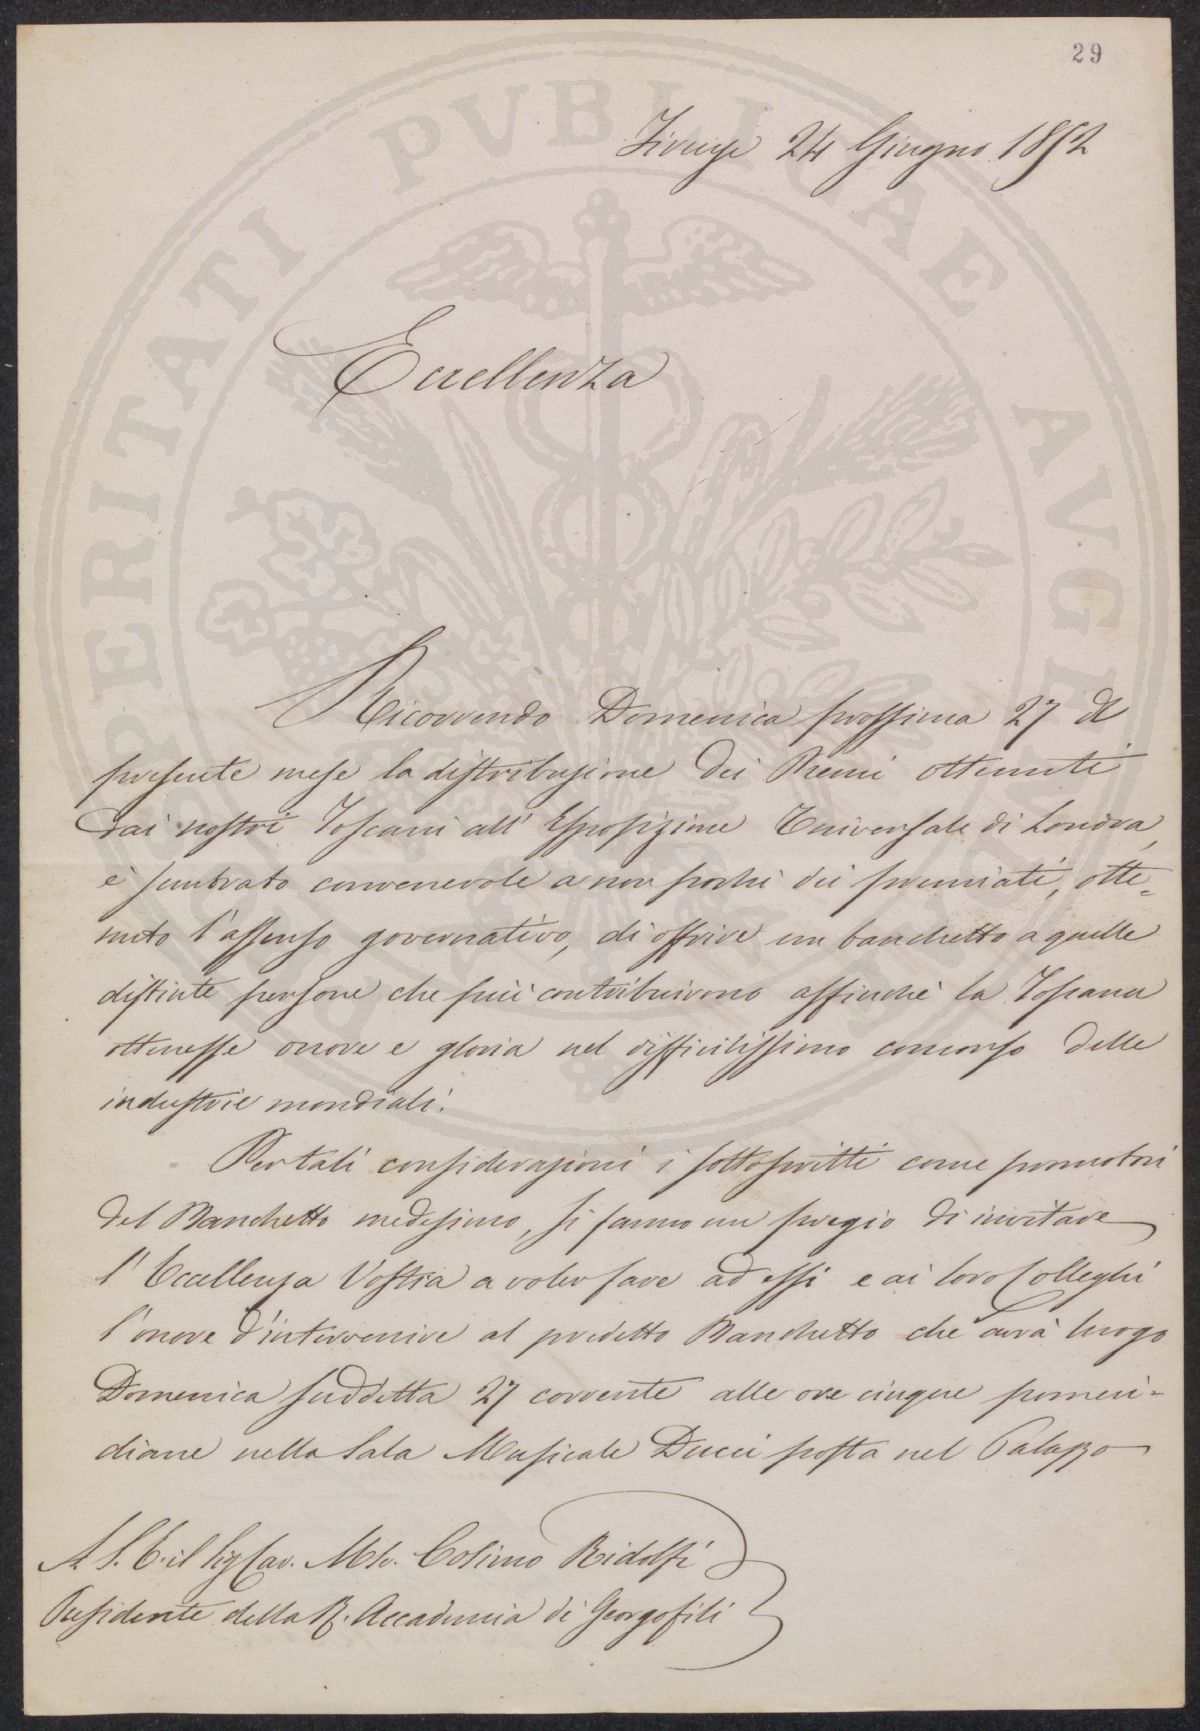 29
Firenze 24 Giugno 1852
Eccellenza
Ricorrendo Domenica prossima 27 del
presente mese la distribuzione dei Premi ottenuti
dai nostri Toscani all' Esposizione Universale di Londra,
è sembrato convenevole a non pochi dei premiati, otte=
nuto l'assenso governativo, di offrire un banchetto a quelle
distinte persone che più contribuirono affinchè la Toscana
ottenesse onore e gloria nel difficilissimo concorso delle
industrie mondiali.
Per tali considerazioni i sottoscritti come promotori
del Banchetto medesimo, si fanno un pregio di invitare
l'Eccellenza Vostra a voler fare ad essi e ai loro Colleghi
l'onore d'intervenire al predetto Banchetto che avrà luogo
Domenica suddetta 27 corrente alle ore cinque pomeri=
diane nella Sala Musicale Ducci posta nel Palazzo
A S. E. il Sig Cav. Mse. Cosimo Ridolfi
Presidente della R. Accademia di Georgofili
PROSPERITATI PVBLICAE AVGENDAE